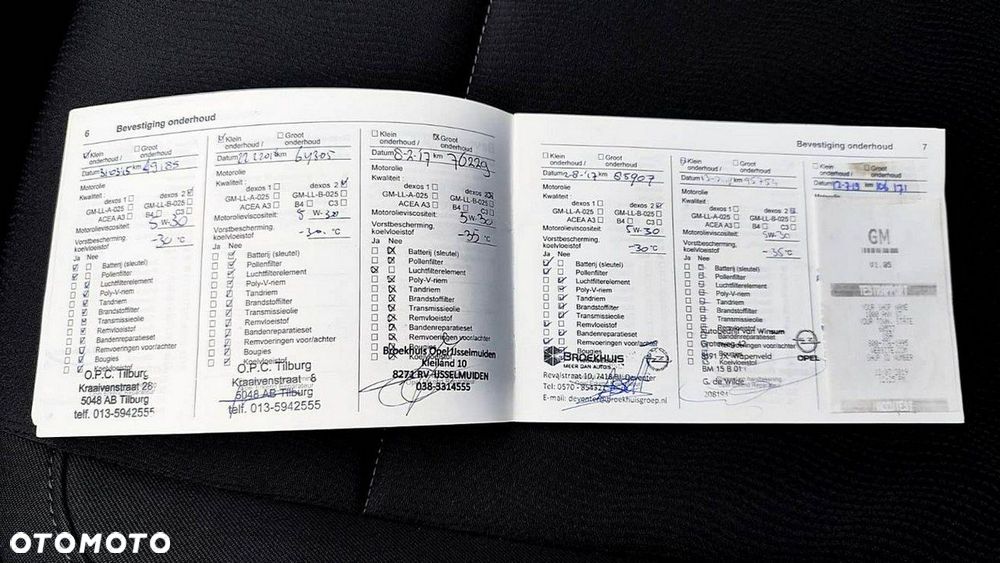 6 Bevestiging onderhoud
Klein onderhoud / Groot onderhoud
Datum km 49185
Motorolie
Kwaliteit:
dexos 1 dexos 2
GM-LL-A-025 GM-LL-B-025
ACEA A3 B4 C3
Motorolieviscositeit: 5W-30
Vorstbescherming,
koelvloeistof -30 °C
Ja Nee
Batterij (sleutel)
Pollenfilter
Luchtfilterelement
Poly-V-riem
Tandriem
Brandstoffilter
Transmissieolie
Remvloeistof
Bandenreparatieset
Remvoeringen voor/achter
Bougies
Koelvloeistof
O.P.C. Tilburg
Kraaivenstraat 28
5048 AB Tilburg
telf. 013-5942555
Klein onderhoud / Groot onderhoud
Datum km 64305
dexos 1 dexos 2
GM-LL-A-025 GM-LL-B-025
ACEA A3 B4 C3
Motorolieviscositeit: 5W-30
Vorstbescherming,
koelvloeistof °C
Ja Nee
Batterij (sleutel)
Pollenfilter
Luchtfilterelement
Poly-V-riem
Tandriem
Brandstoffilter
Transmissieolie
Remvloeistof
Bandenreparatieset
Remvoeringen voor/achter
Bougies
Koelvloeistof
O.P.C. Tilburg
Kraaivenstraat
5048 AB Tilburg
telf. 013-5942555
Klein onderhoud / Groot onderhoud
Datum 8-2-17 km 76229
Motorolie
Kwaliteit:
dexos 1 dexos 2
GM-LL-A-025 GM-LL-B-025
ACEA A3 B4 C3
Motorolieviscositeit: 5W-30
Vorstbescherming,
koelvloeistof -35 °C
Ja Nee
Batterij (sleutel)
Pollenfilter
Luchtfilterelement
Poly-V-riem
Tandriem
Brandstoffilter
Transmissieolie
Remvloeistof
Bandenreparatieset
Remvoeringen voor/achter
Bougies
Broekhuis Opel IJsselmuiden
Kleiland 10
8271 RV IJSSELMUIDEN
038-3314555
Bevestiging onderhoud 7
Klein onderhoud / Groot onderhoud
Datum 2-8-'17 km 85907
Motorolie
Kwaliteit:
dexos 1 dexos 2
GM-LL-A-025 GM-LL-B-025
ACEA A3 B4 C3
Motorolieviscositeit: 5W-30
Vorstbescherming,
koelvloeistof -30 °C
Ja Nee
Batterij (sleutel)
Pollenfilter
Luchtfilterelement
Poly-V-riem
Tandriem
Brandstoffilter
Transmissieolie
Remvloeistof
Bandenreparatieset
Remvoeringen voor/achter
Bougies
BROEKHUIS
MEER DAN AUTO'S
Revalstraat 10, 7418 BJ Deventer
Tel: 0570
E-mail: deventer@broekhuisgroep.nl
Klein onderhoud / Groot onderhoud
Datum km 95754
Motorolie
Kwaliteit:
dexos 1 dexos 2
GM-LL-A-025 GM-LL-B-025
ACEA A3 B4 C3
Motorolieviscositeit: 5W-30
Vorstbescherming,
koelvloeistof -35 °C
Ja Nee
Batterij (sleutel)
Pollenfilter
Luchtfilterelement
Poly-V-riem
Tandriem
Brandstoffilter
Transmissieolie
Remvloeistof
Bandenreparatieset
Autobedrijf van Winsum
Wapenveld
BM 15 B 01
G. de Wilde
208191
OPEL
Datum 12-7-19 km 106171
GM
V1.05
OTOMOTO